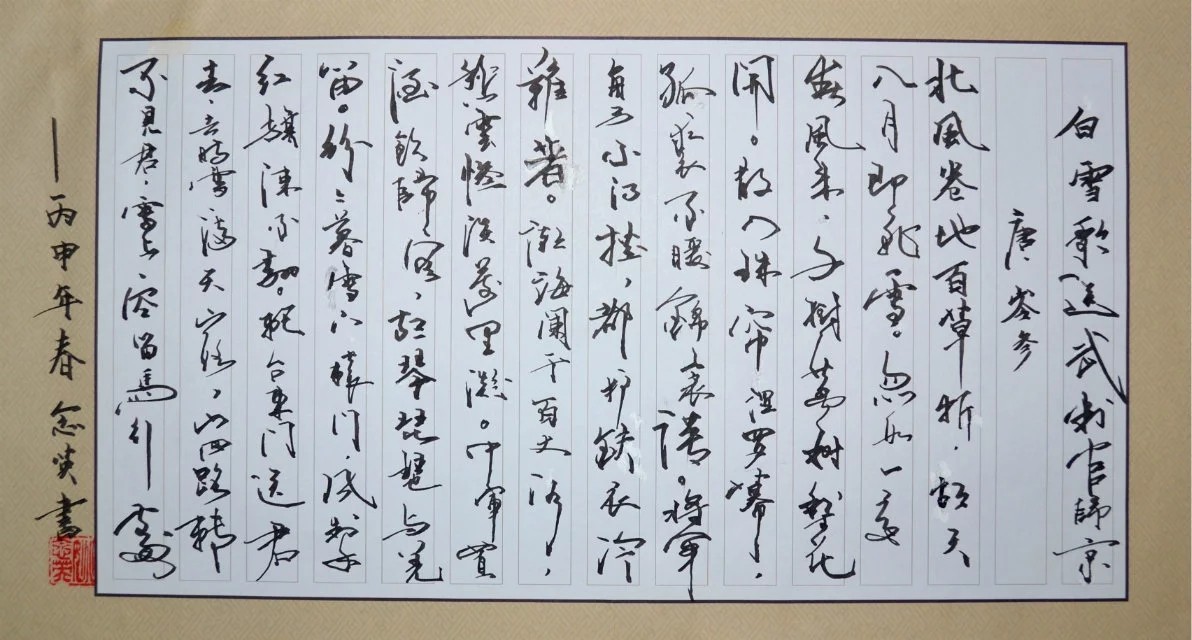 白雪歌送武判官歸京
唐 岑参
北風卷地百草折，胡天
八月即飛雪。忽如一夜
春風来，千樹萬树梨花
開。散入珠帘湿罗幕，
狐裘不暖錦衾薄。将军
角弓不得控，都护鉄衣冷
難着。瀚海阑干百丈冰，
愁雲惨淡萬里凝。中軍置
酒飲歸客，胡琴琵琶与羌
笛。纷々暮雪下辕门，风掣
红旗凍不翻。轮台東门送君
去，去時雪满天山路，山回路转
不見君，雪上空留馬行處
——丙申年春 念 書